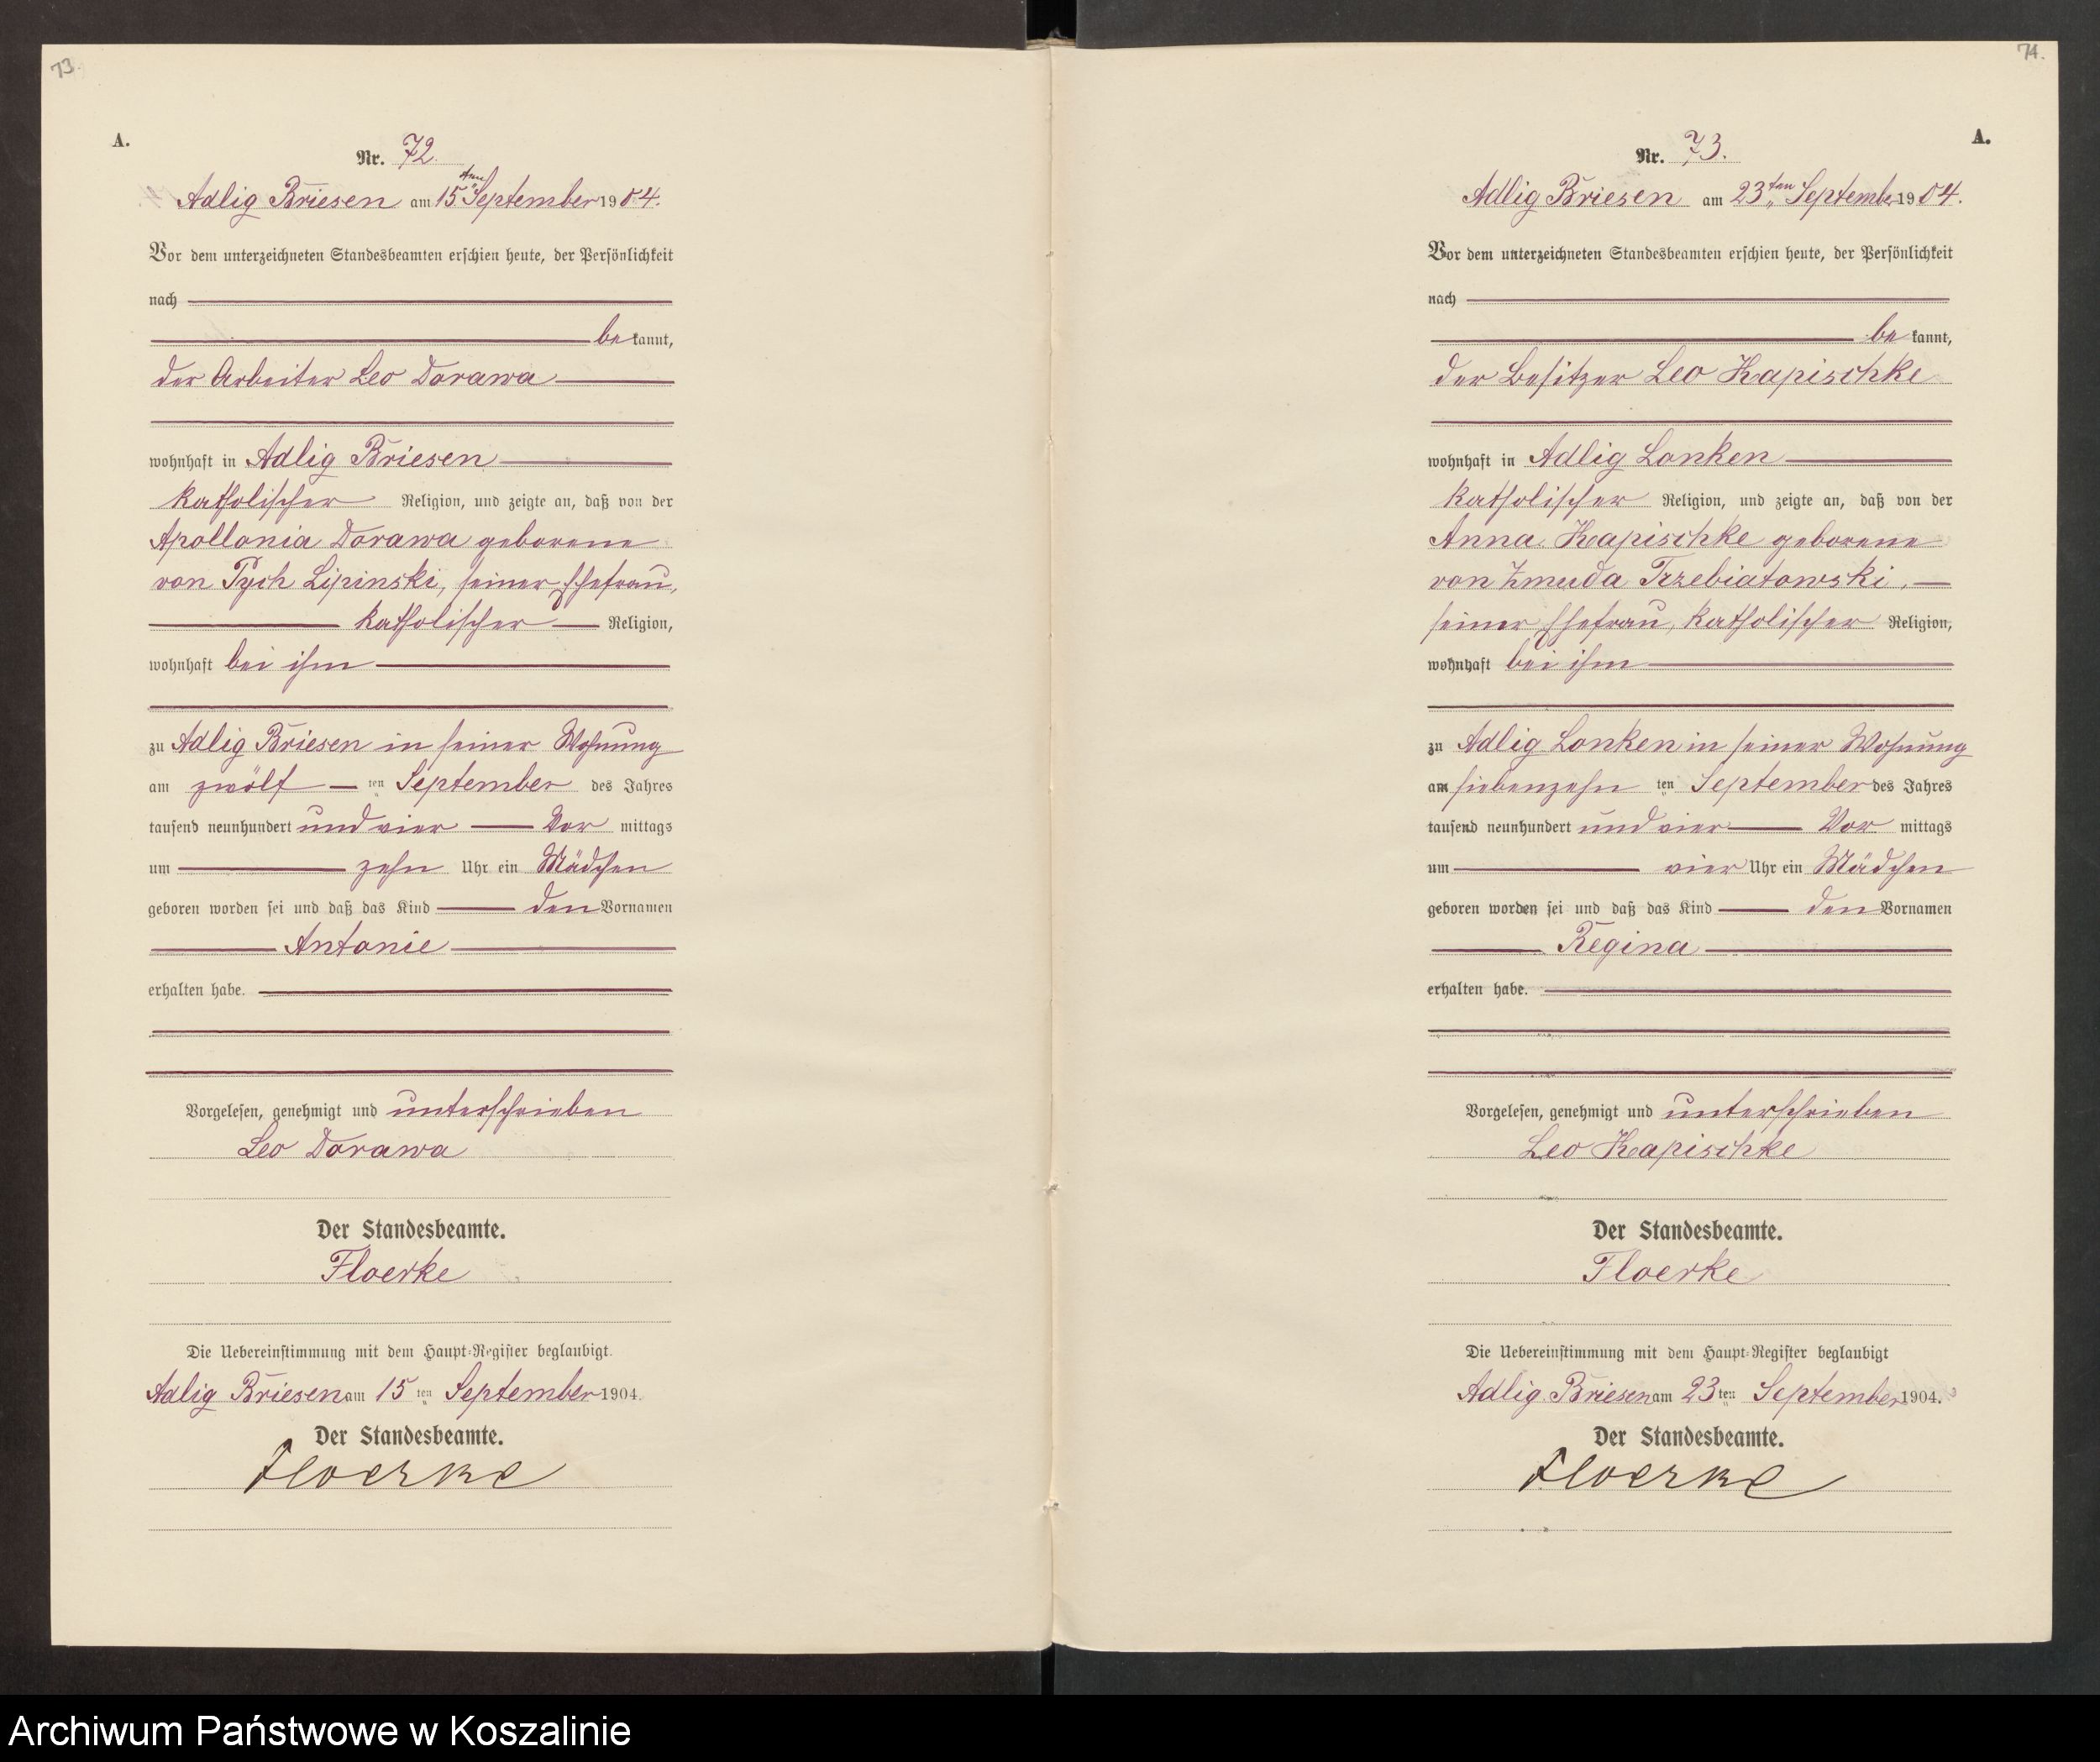 73.
A.
Nr. 72.
Adlig Briesen am 15ten September 1904.
Vor dem unterzeichneten Standesbeamten erschien heute, der Persönlichkeit
nach
be kannt,
der Arbeiter Leo Dorawa
wohnhaft in Adlig Briesen
katholischer Religion, und zeigte an, daß von der
Apollonia Dorawa geborene
von Pych Lipinski, seiner Ehefrau,
katholischer Religion,
wohnhaft bei ihm
zu Adlig Briesen in seiner Wohnung
am zwölf ten September des Jahres
tausend neunhundert und vier Vor mittags
um zehn Uhr ein Mädchen
geboren worden sei und daß das Kind den Vornamen
Antonie
erhalten habe.
Vorgelesen, genehmigt und unterschrieben
Leo Dorawa
Der Standesbeamte.
Floerke
Die Uebereinstimmung mit dem Haupt-Register beglaubigt.
Adlig Briesen am 15 ten September 1904.
Der Standesbeamte.
Floerke
74.
A.
Nr. 73.
Adlig Briesen am 23ten September 1904.
Vor dem unterzeichneten Standesbeamten erschien heute, der Persönlichkeit
nach
be kannt,
der Besitzer Leo Kapischke
wohnhaft in Adlig Lonken
katholischer Religion, und zeigte an, daß von der
Anna Kapischke geborene
von Zmuda Trzebiatowski,
seiner Ehefrau, katholischer Religion,
wohnhaft bei ihm
zu Adlig Lonken in seiner Wohnung
am siebenzehn ten September des Jahres
tausend neunhundert und vier Vor mittags
um vier Uhr ein Mädchen
geboren worden sei und daß das Kind den Vornamen
Regina
erhalten habe.
Vorgelesen, genehmigt und unterschrieben
Leo Kapischke
Der Standesbeamte.
Floerke
Die Uebereinstimmung mit dem Haupt-Register beglaubigt
Adlig Briesen am 23 ten September 1904.
Der Standesbeamte.
Floerke
Archiwum Państwowe w Koszalinie